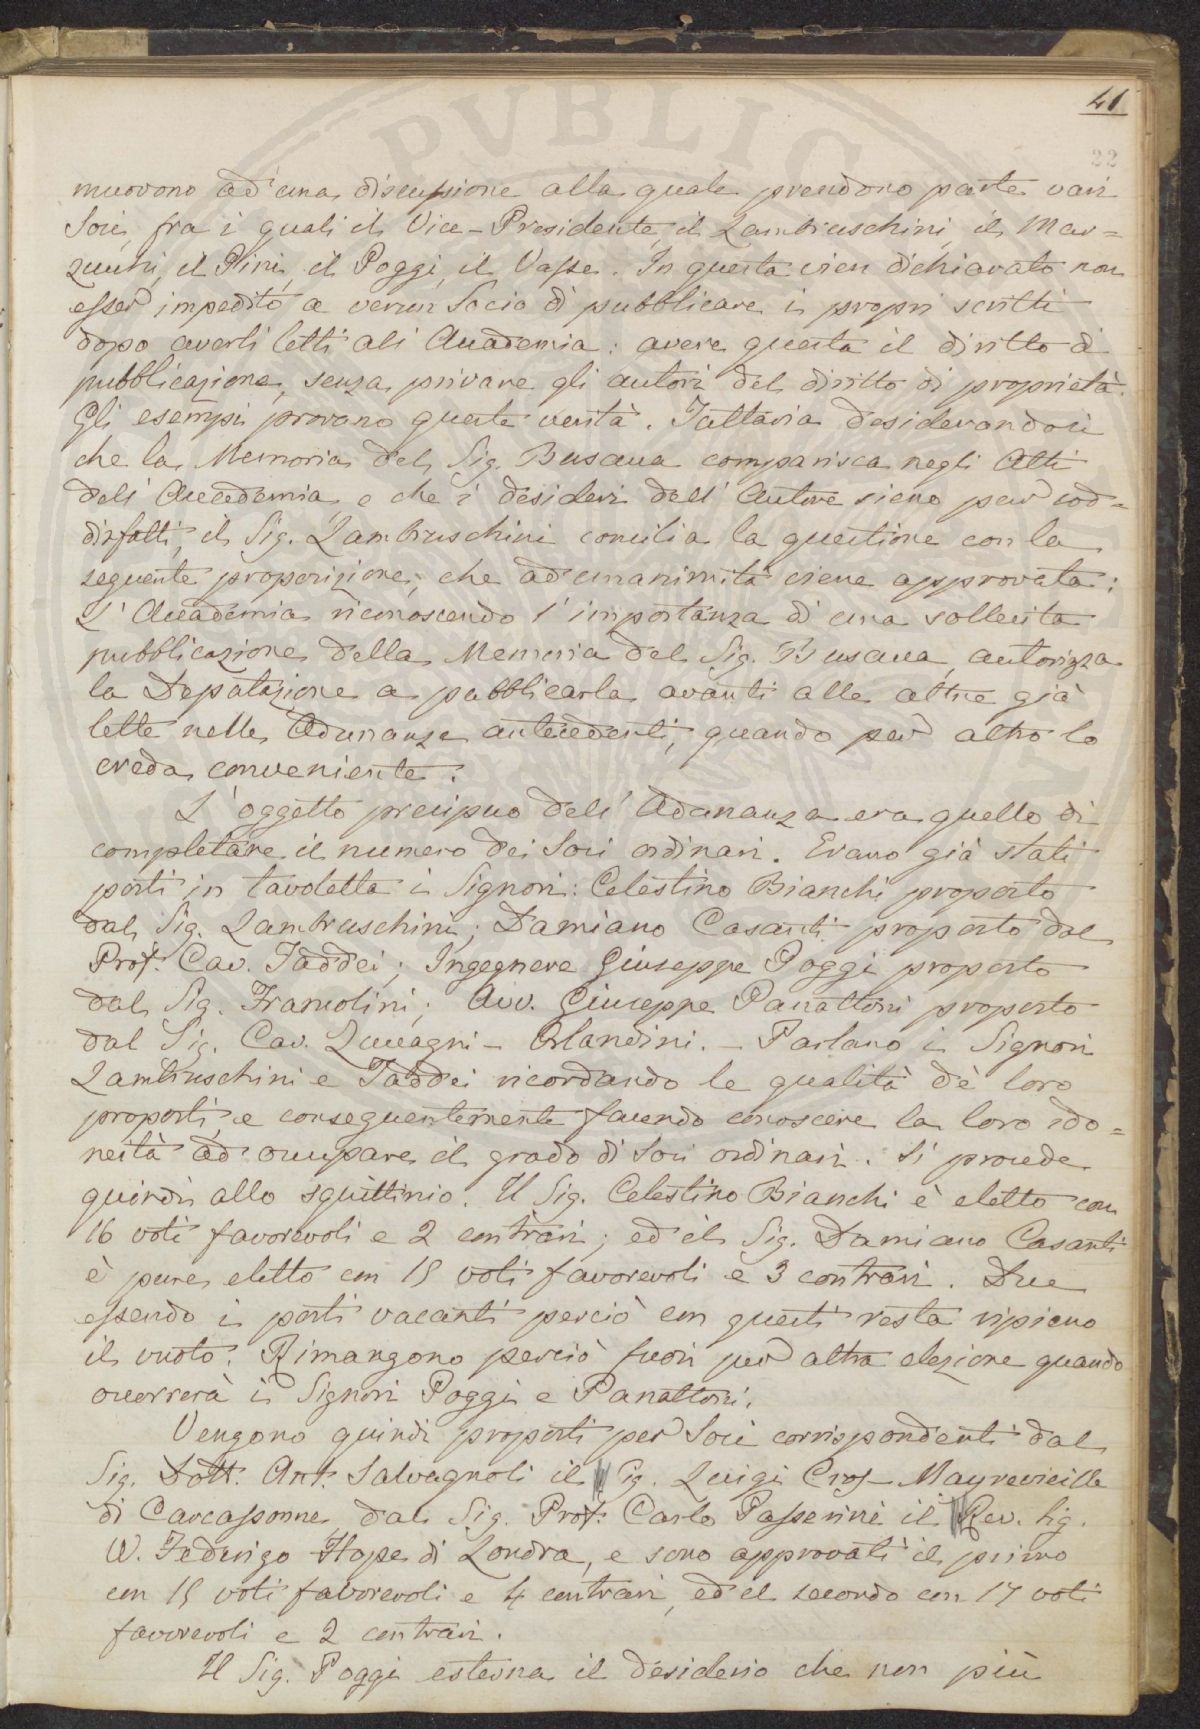 41
22
muovono ad una discussione alla quale prendono parte vari
Soci, fra i quali il Vice-Presidente, il Lambruschini, il Mar=
zucchi, il Pini, il Poggi, il Vasse. In questa vien dichiarato non
esser impedito a verun Socio di pubblicare i propri scritti
dopo averli letti all' Accademia: avere questa il diritto di
pubblicazione, senza privare gli autori del diritto di proprietà.
Gli esempi provano queste verità. Tuttavia desiderandosi
che la Memoria del Sig. Busacca comparisca negli Atti
dell' Accademia e che i desideri dell' Autore sieno pur sod=
disfatti, il Sig. Lambruschini concilia la questione con la
seguente proposizione, che ad unanimità viene approvata:
L' Accademia riconoscendo l' importanza di una sollecita
pubblicazione della Memoria del Sig. Busacca, autorizza
la Deputazione a pubblicarla avanti alle altre già
lette nelle Adunanze antecedenti, quando per altro lo
creda conveniente.
L' oggetto precipuo dell' Adunanza era quello di
completare il numero dei Soci ordinari. Erano già stati
posti in tavoletta i Signori: Celestino Bianchi proposto
dal Sig. Lambruschini; Damiano Casanti proposto dal
Prof. Cav. Taddei; Ingegnere Giuseppe Poggi proposto
dal Sig. Francolini; Avv. Giuseppe Panattoni proposto
dal Sig. Cav. Zuccagni-Orlandini. - Parlano i Signori
Lambruschini e Taddei ricordando le qualità de' loro
proposti, e conseguentemente facendo conoscere la loro ido=
neità ad occupare il grado di Soci ordinari. Si procede
quindi allo squittinio. Il Sig. Celestino Bianchi è eletto con
16 voti favorevoli e 2 contrari; ed il Sig. Damiano Casanti
è pure eletto con 15 voti favorevoli e 3 contrari. Due
essendo i posti vacanti perciò con questi resta ripieno
il vuoto. Rimangono perciò fuori per altra elezione quando
occorrerà i Signori Poggi e Panattoni.
Vengono quindi proposti per Soci corrispondenti dal
Sig. Dott. Ant. Salvagnoli il Sig. Luigi Cros-Mayrevieille
di Carcassonne, dal Sig. Prof. Carlo Passerini il Rev. Sig.
W. Federigo Hope di Londra, e sono approvati il primo
con 15 voti favorevoli e 4 contrari, ed il secondo con 17 voti
favorevoli e 2 contrari.
Il Sig. Poggi esterna il desiderio che non più